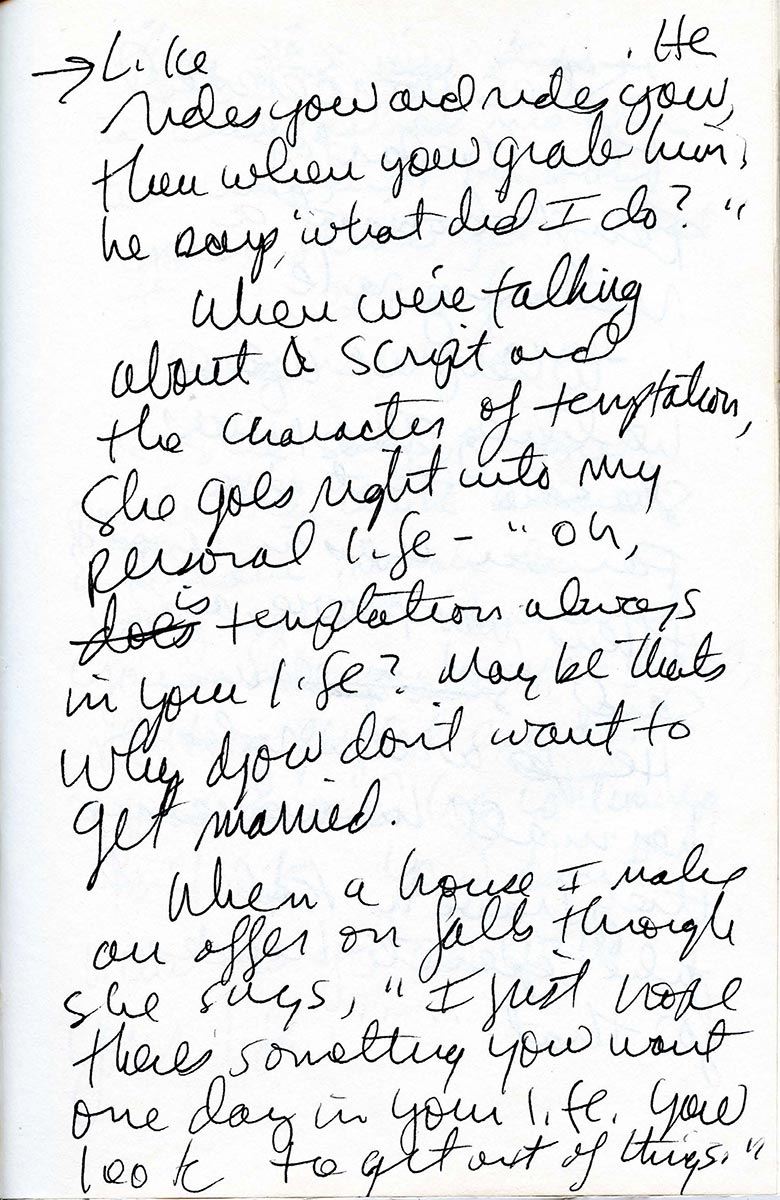 → Like . He
rides you and rides you,
then when you grab him,
he says, "what did I do?"
When we're talking
about a script and
the character of temptation,
she goes right into my
personal life - "Oh,
does is temptation always
in your life? Maybe thats
why you don't want to
get married.
When a house I make
an offer on falls through
she says, "I just hope
there's something you want
one day in your life. You
look to get out of things."